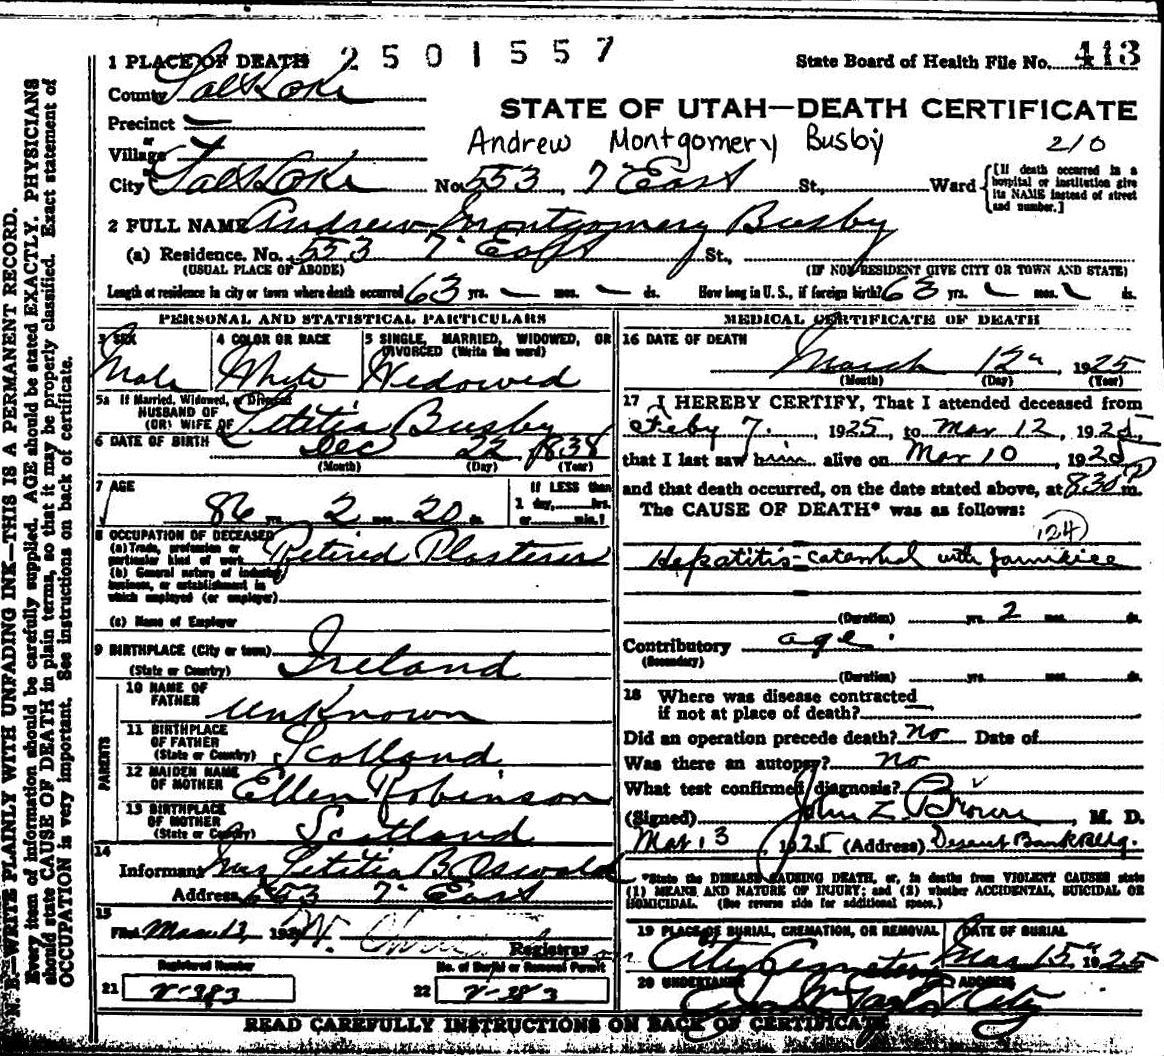 1 PLACE OF DEATH 2501557
State Board of Health File No. 413
County Salt Lake
STATE OF UTAH—DEATH CERTIFICATE
Precinct
Andrew Montgomery Busby 210
or
Village
or
City Salt Lake No. 553, 7" East St., Ward
[If death occurred in a hospital or institution give its NAME instead of street and number.]
2 FULL NAME Andrew Montgomery Busby
(a) Residence. No. 553 7" East St.,
(USUAL PLACE OF ABODE) (IF NON-RESIDENT GIVE CITY OR TOWN AND STATE)
Length of residence in city or town where death occurred 63 yrs. – mos. – ds. How long in U. S., if foreign birth? 63 yrs. mos. ds.
PERSONAL AND STATISTICAL PARTICULARS
3 SEX 4 COLOR OR RACE 5 SINGLE, MARRIED, WIDOWED, OR DIVORCED (Write the word)
Male White Widowed
5a If Married, Widowed, or Divorced
HUSBAND OF
(OR) WIFE OF Letitia Busby
6 DATE OF BIRTH Dec 22 1838
(Month) (Day) (Year)
7 AGE
If LESS than
1 day,......hrs.
or......min.?
86 yrs. 2 mos. 20 ds.
8 OCCUPATION OF DECEASED
(a) Trade, profession or
particular kind of work Retired Plasterer
(b) General nature of industry
business, or establishment in
which employed (or employer)
(c) Name of Employer
9 BIRTHPLACE (City or town)
(State or Country) Ireland
PARENTS
10 NAME OF
FATHER unknown
11 BIRTHPLACE
OF FATHER
(State or Country) Scotland
12 MAIDEN NAME
OF MOTHER Ellen Robinson
13 BIRTHPLACE
OF MOTHER
(State or Country) Scotland
14
Informant Mrs Letitia B. Oswald
Address 553 7" East
15
Filed Mar 13, 192
Registrar
Registered Number No. of Burial or Removal Permit
21 V-383 22 V-383
MEDICAL CERTIFICATE OF DEATH
16 DATE OF DEATH
March 12" 1925
(Month) (Day) (Year)
17 I HEREBY CERTIFY, That I attended deceased from
Feby 7. , 1925, to Mar 12, 1925,
that I last saw him alive on Mar 10, 1925
and that death occurred, on the date stated above, at 830 P m.
The CAUSE OF DEATH* was as follows:
124
Hepatitis-catarrhal with jaundice
(Duration) yrs. 2 mos. ds.
Contributory age.
(Secondary)
(Duration) yrs. mos. ds.
18 Where was disease contracted
if not at place of death? —
Did an operation precede death? No Date of
Was there an autopsy? no
What test confirmed diagnosis?
(Signed) John Z Brown, M. D.
Mar 13, 1925 (Address) Deseret Bank Bldg.
*State the DISEASE CAUSING DEATH, or, in deaths from VIOLENT CAUSES state
(1) MEANS AND NATURE OF INJURY; and (2) whether ACCIDENTAL, SUICIDAL OR
HOMICIDAL. (See reverse side for additional space.)
19 PLACE OF BURIAL, CREMATION, OR REMOVAL DATE OF BURIAL
City Cemetery Mar 15" 1925
20 UNDERTAKER ADDRESS
Taylor City
READ CAREFULLY INSTRUCTIONS ON BACK OF CERTIFICATE
N. B.—WRITE PLAINLY WITH UNFADING INK—THIS IS A PERMANENT RECORD.
Every item of information should be carefully supplied. AGE should be stated EXACTLY. PHYSICIANS
should state CAUSE OF DEATH in plain terms, so that it may be properly classified. Exact statement of
OCCUPATION is very important. See instructions on back of certificate.